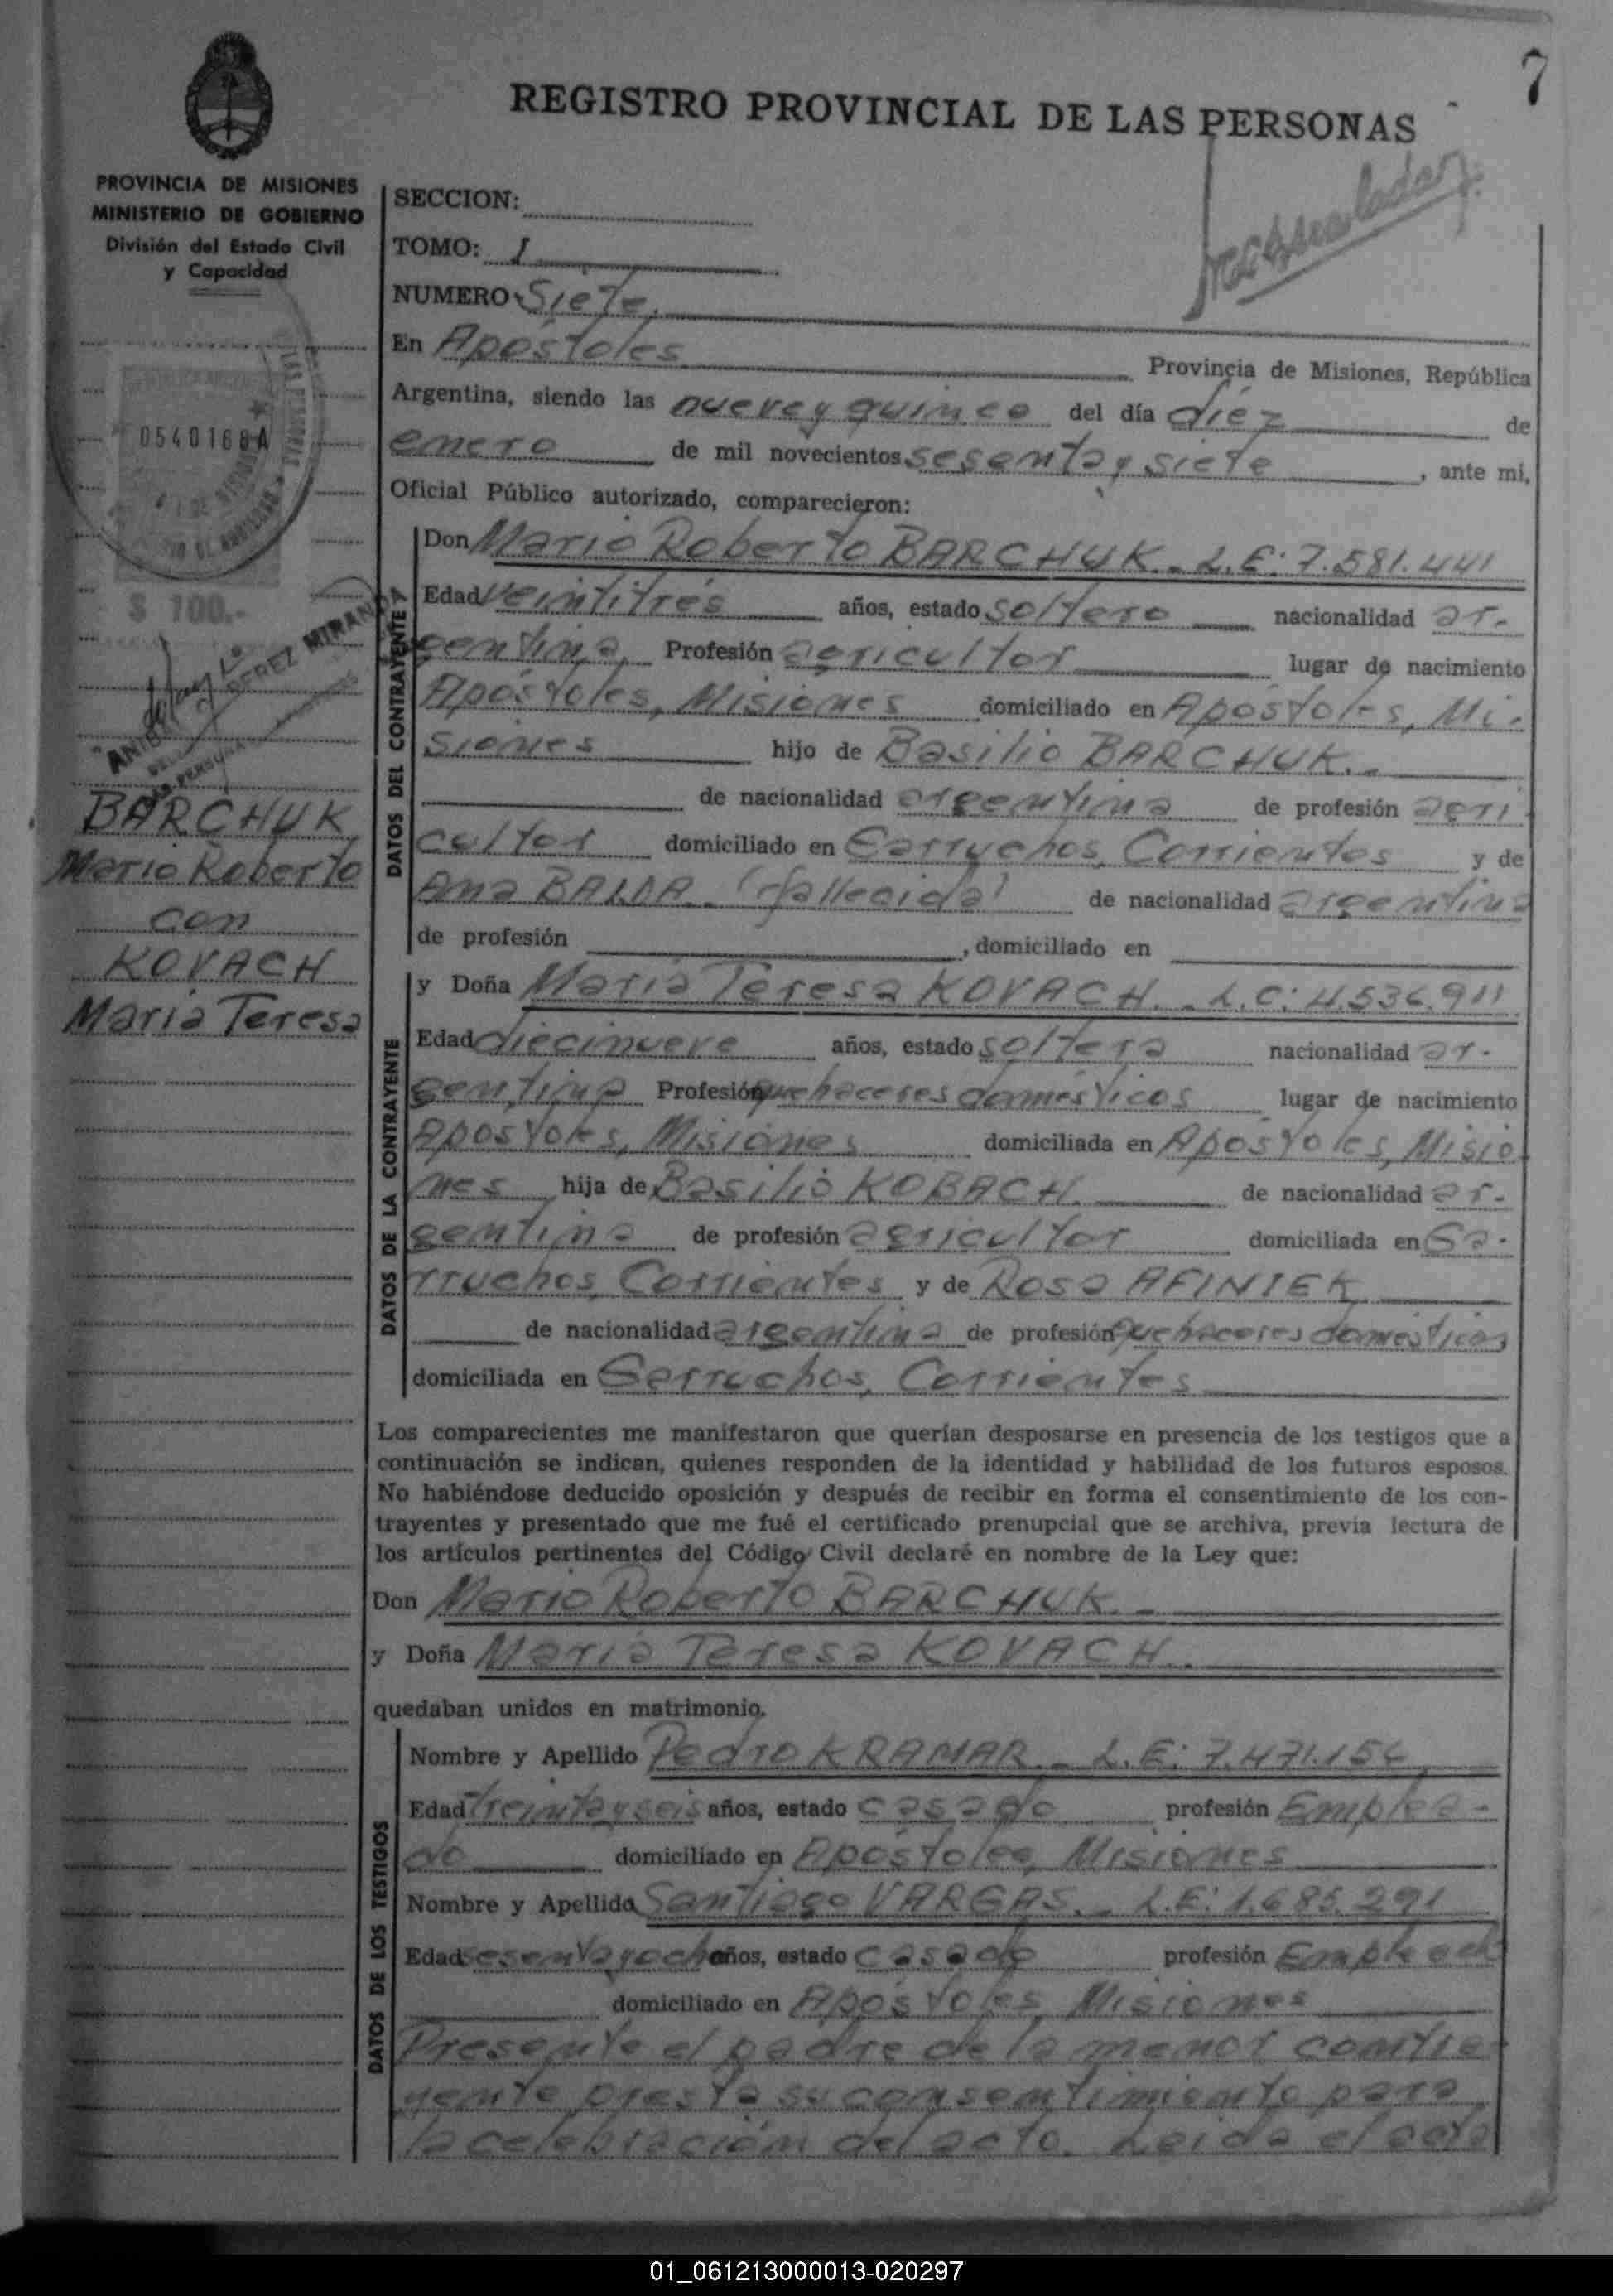 7
REGISTRO PROVINCIAL DE LAS PERSONAS
PROVINCIA DE MISIONES
MINISTERIO DE GOBIERNO
División del Estado Civil
y Capacidad
0540168A
$ 100.-
PEREZ MIRAN
BARCHUK
Mario Roberto
con
KOVACH
Maria Teresa
SECCION:
TOMO: I
NUMERO Siete.
En Apóstoles Provincia de Misiones, República
Argentina, siendo las nueve y quince del día diéz de
enero de mil novecientos sesenta y siete, ante mi,
Oficial Público autorizado, comparecieron:
DATOS DEL CONTRAYENTE
Don Mario Roberto BARCHUK.- L.E: 7.581.441
Edad veintitrés años, estado soltero nacionalidad ar-
gentina, Profesión agricultor lugar de nacimiento
Apóstoles, Misiones domiciliado en Apóstoles, Mi-
siones hijo de Basilio BARCHUK.-
de nacionalidad argentina de profesión agri
cultor domiciliado en Garruchos, Corrientes y de
Ana BALDA.. (fallecida) de nacionalidad argentina
de profesión , domiciliado en
DATOS DE LA CONTRAYENTE
y Doña María Teresa KOVACH.- L.C: 4.536.911
Edad diecinueve años, estado soltera nacionalidad ar-
gentina Profesión quehaceres domésticos lugar de nacimiento
Apostoles, Misiones domiciliada en Apóstoles, Misio-
nes hija de Basilio KOBACH. de nacionalidad ar-
gentina de profesión agricultor domiciliada en Ga-
rruchos, Corrientes y de Rosa AFINIEK
de nacionalidad argentina de profesión quehaceres domésticos
domiciliada en Garruchos, Corrientes
Los comparecientes me manifestaron que querían desposarse en presencia de los testigos que a
continuación se indican, quienes responden de la identidad y habilidad de los futuros esposos.
No habiéndose deducido oposición y después de recibir en forma el consentimiento de los con-
trayentes y presentado que me fué el certificado prenupcial que se archiva, previa lectura de
los artículos pertinentes del Código Civil declaré en nombre de la Ley que:
Don Mario Roberto BARCHUK.-
y Doña María Teresa KOVACH.
quedaban unidos en matrimonio.
DATOS DE LOS TESTIGOS
Nombre y Apellido Pedro KRAMAR.- L.E: 7.471.154
Edad treinta y seis años, estado casado profesión Emplea-
do domiciliado en Apóstoles, Misiones
Nombre y Apellido Santiago VARGAS.- L.E: 1.685.291
Edad sesenta y ocho años, estado casado profesión Empleado
domiciliado en Apóstoles, Misiones
Presente el padre de la menor contra-
yente presta su consentimiento para
la celebración del acto. Leida el acta
01_061213000013-020297